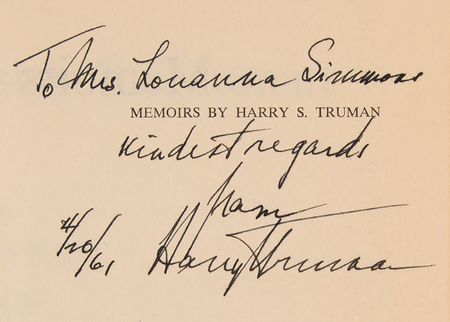 To Mrs. Louanna Simmons
MEMOIRS BY HARRY S. TRUMAN
Kindest regards
from
4/20/61 Harry Truman